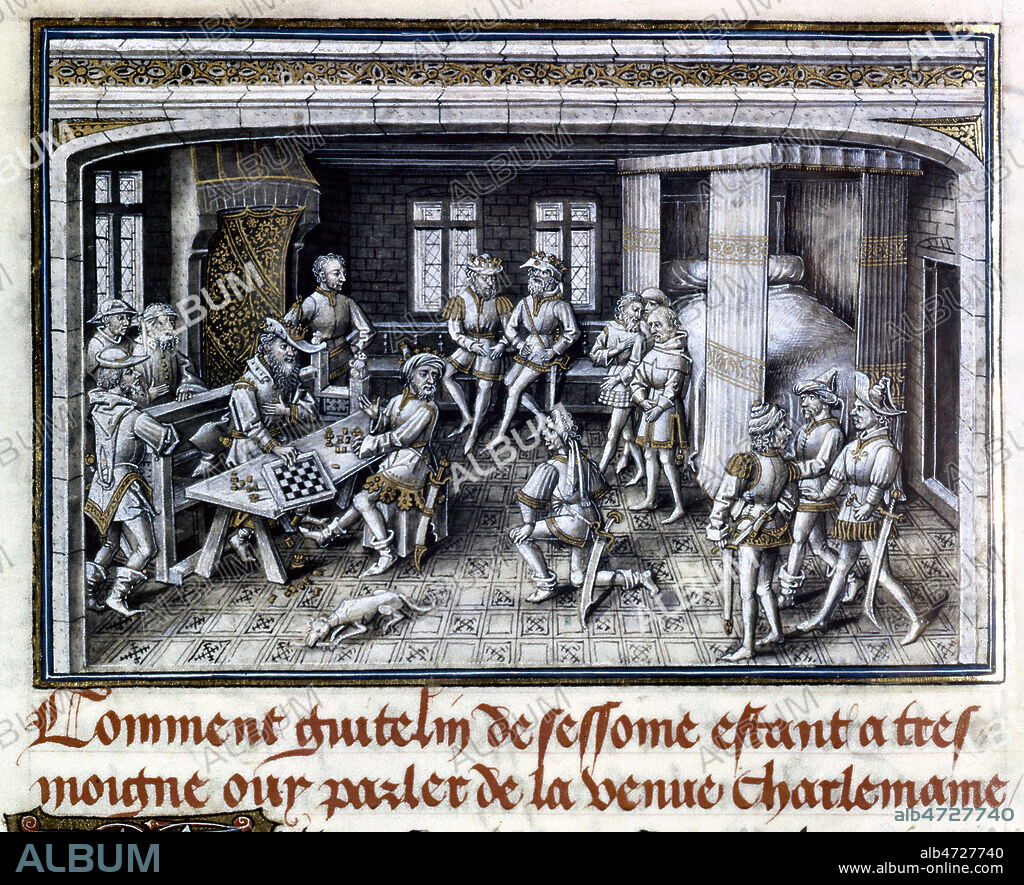 Comment guitelin de sessome estant a tres
moigne ouy parler de la venue Charlemaine
alb4727740
ALBUM
alb4727740
www.album-online.com